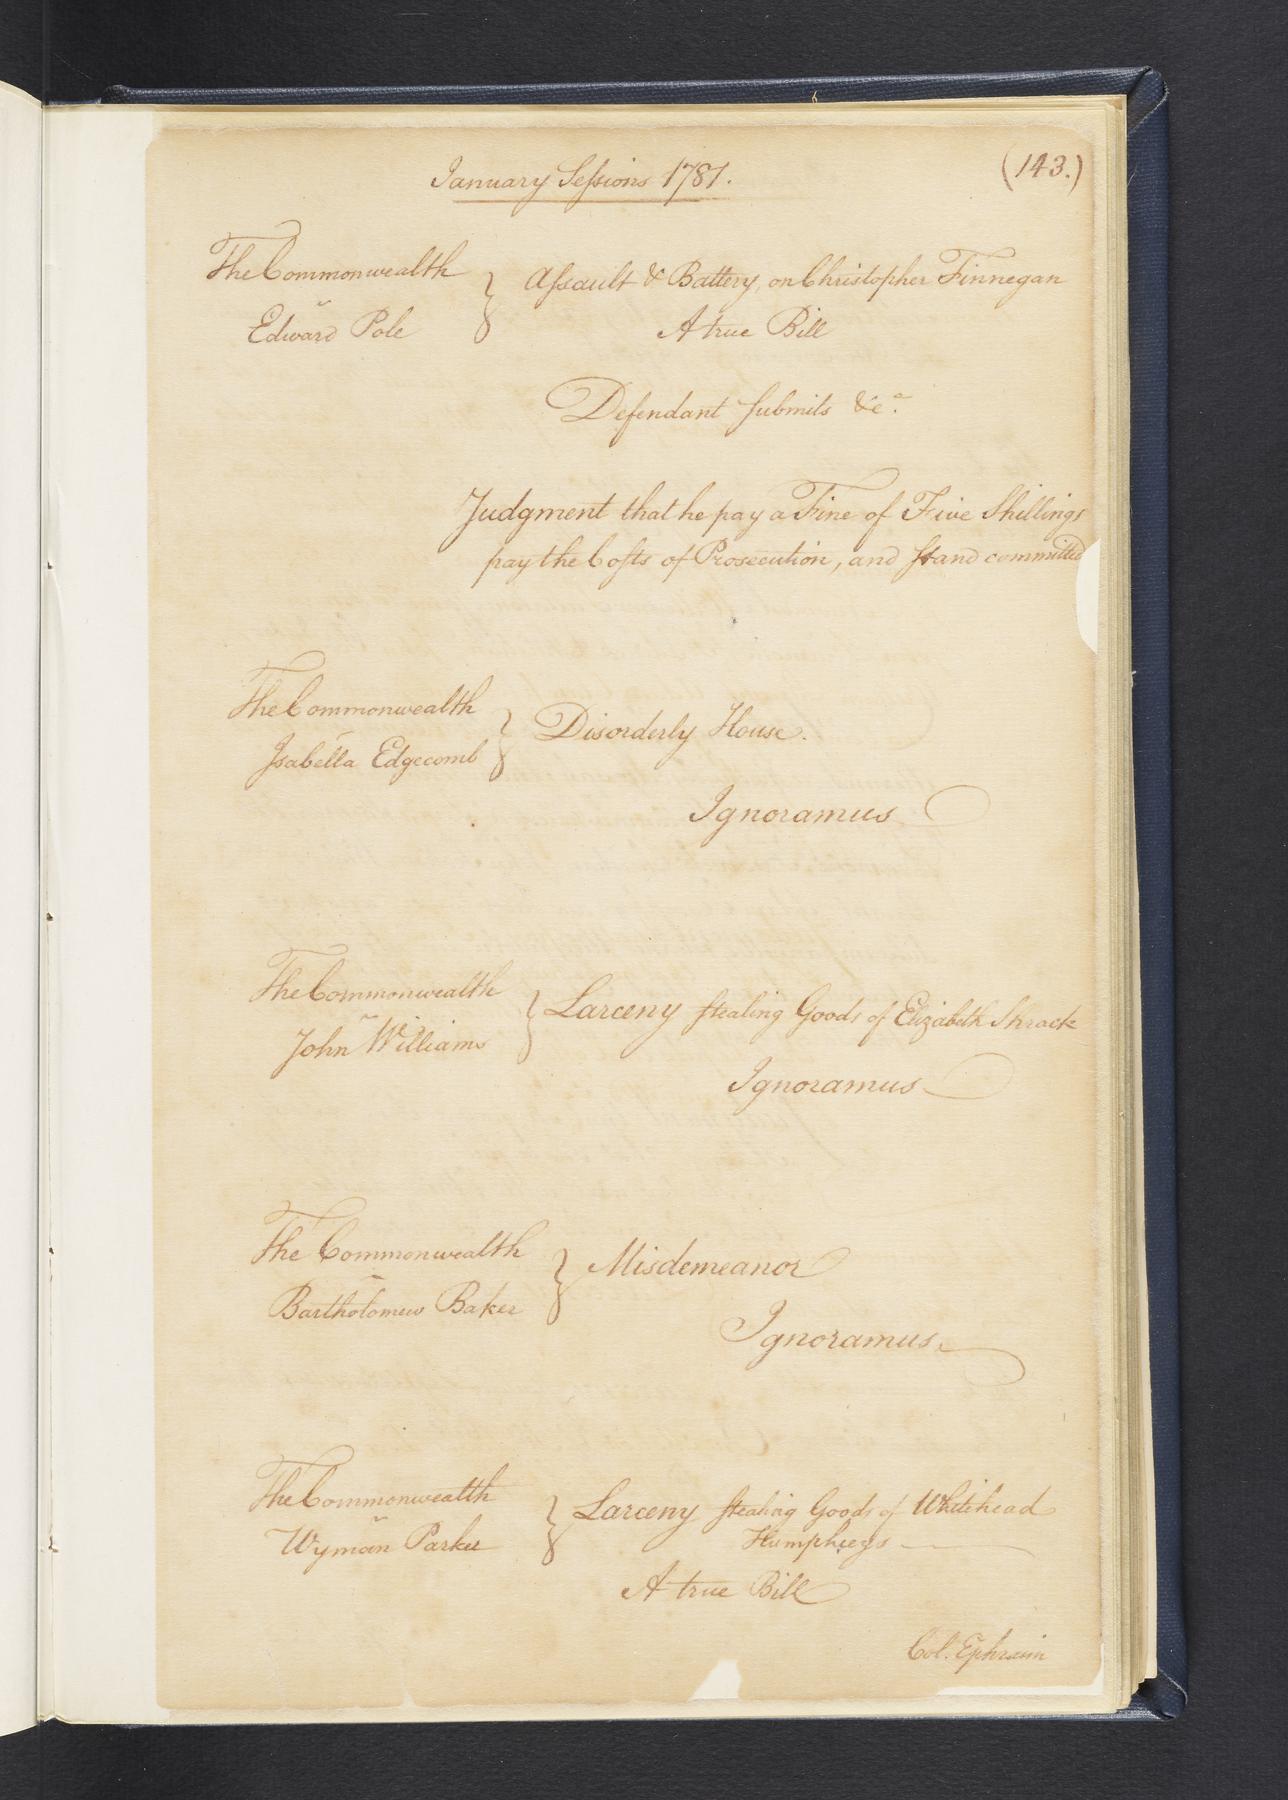 January Sessions 1781.
(143.)
The Commonwealth
v
Edward Pole
Assault & Battery, on Christopher Finnegan
A true Bill
Defendant submits &ca.
Judgment that he pay a Fine of Five Shillings
pay the Costs of Prosecution, and stand committed
The Commonwealth
v
Isabella Edgecomb
Disorderly House.
Ignoramus
The Commonwealth
v
John Williams
Larceny stealing Goods of Elizabeth Shrack
Ignoramus
The Commonwealth
v
Bartholomew Baker
Misdemeanor
Ignoramus.
The Commonwealth
v
Wyman Parker
Larceny stealing Goods of Whitehead
Humphreys
A true Bill
Col. Ephraim